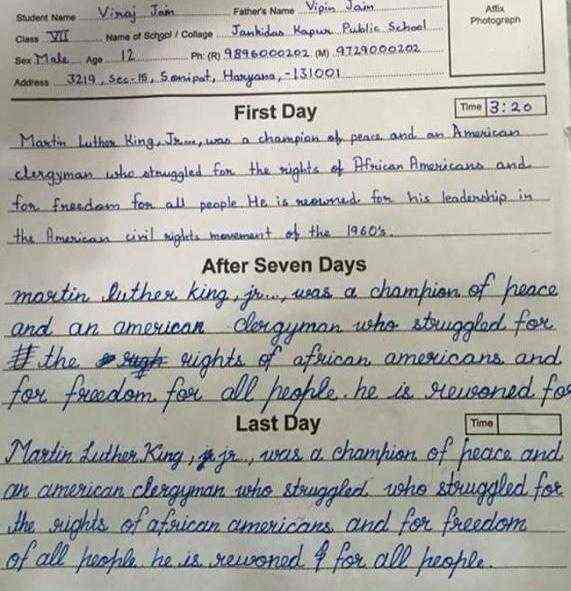 Student Name Viraj Jain Father's Name Vipin Jain
Affix
Photograph
Class VII Name of School / Collage Jankidas Kapur Public School
Sex Male Age 12 Ph: (R) 9896000202 (M) 9729000202
Address 3219, Sec-15, Sonipat, Haryana, -131001
First Day
Time 3:20
Martin Luther King, Jr..., was a champion of peace and an American
clergyman who struggled for the rights of African Americans and
for freedom for all people He is reowned for his leadership in
the American civil rights movement of the 1960's.
After Seven Days
martin luther king, jr..., was a champion of peace
and an american clergyman who struggled for
the rights of african americans and
for freedom for all people. he is rewoned for
Last Day
Time
Martin Luther King, jr.., was a champion of peace and
an american clergyman who struggled who struggled for
the rights of african americans and for freedom
of all people he is rewoned for all people.